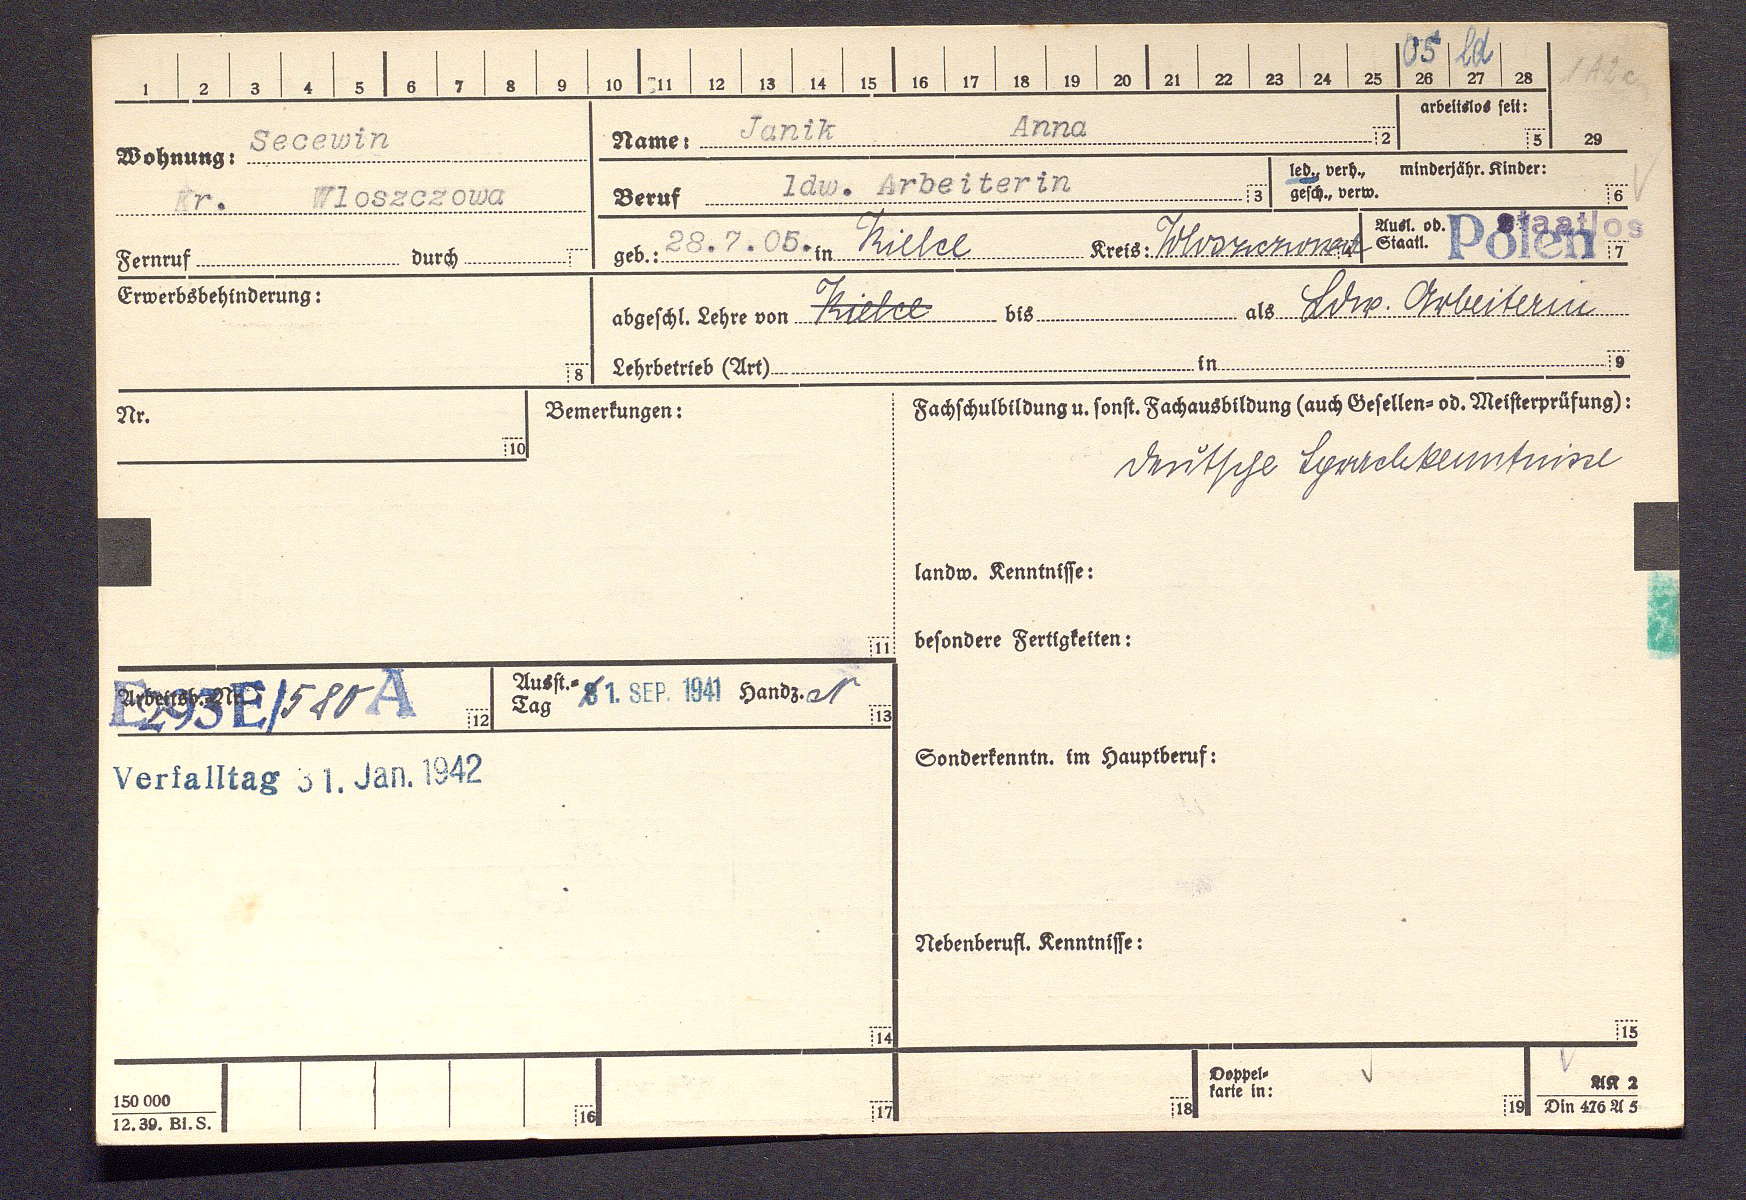 05 ld
1 2 3 4 5 6 7 8 9 10 11 12 13 14 15 16 17 18 19 20 21 22 23 24 25 26 27 28
Wohnung: Secewin
Kr. Wloszczowa
Name: Janik Anna 2
arbeitslos seit: 5
29
Beruf ldw. Arbeiterin 3
led., verh., gesch., verw.
minderjähr. Kinder: 6
Fernruf durch
geb.: 28.7.05. in Kielce Kreis: 4
Ausl. od. Staatl. Polen staatlos 7
Erwerbsbehinderung: 8
abgeschl. Lehre von Kielce bis als Ldw. Arbeiterin
Lehrbetrieb (Art) in 9
Nr. 10
Bemerkungen: 11
Fachschulbildung u. sonst. Fachausbildung (auch Gesellen- od. Meisterprüfung):
deutsche Sprachkenntnisse
landw. Kenntnisse:
besondere Fertigkeiten:
Arbeitsb.-Nr. E293E/580A 12
Ausst.-Tag 1. SEP. 1941 Handz. 13
Verfalltag 31. Jan. 1942
Sonderkenntn. im Hauptberuf:
Nebenberufl. Kenntnisse:
14
15
150 000
12. 39. Bl. S.
16
17
18
Doppel-
karte in:
19
AK 2
Din 476 A 5